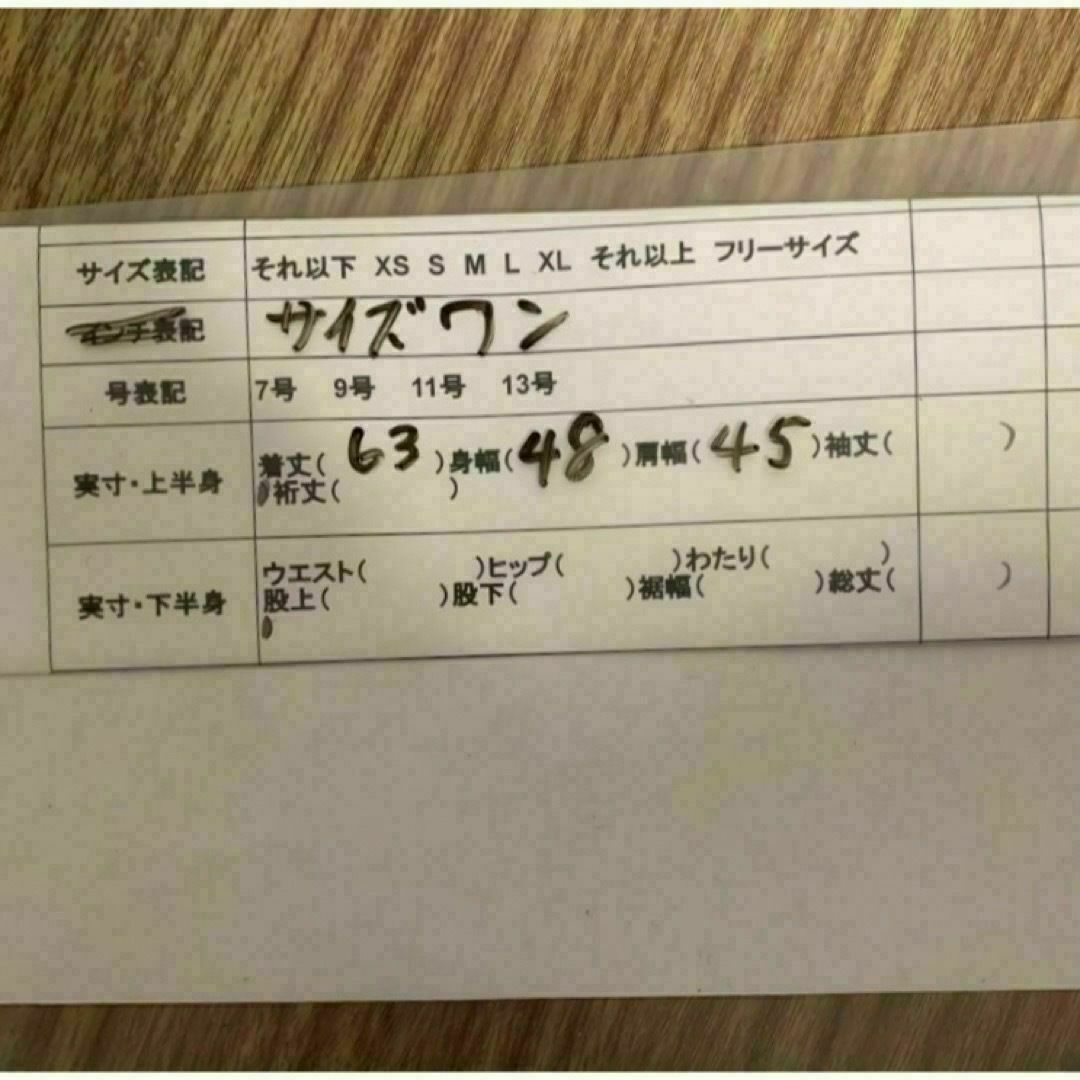 サイズ表記 それ以下 XS S M L XL それ以上 フリーサイズ
インチ表記 サイズワン
号表記 7号 9号 11号 13号
実寸・上半身 着丈( 63 )身幅( 48 )肩幅( 45 )袖丈( )
裄丈( )
実寸・下半身 ウエスト( )ヒップ( )わたり( )
股上( )股下( )裾幅( )総丈( )